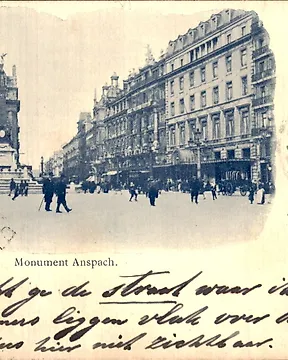 Monument Anspach.
ge de straat waar i
mers liggen vlak over d
hier niet zichtbaar.